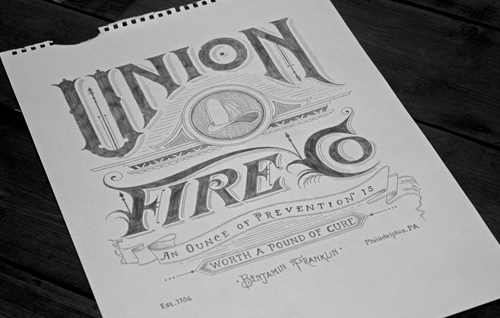 UNION
FIRE Co
AN OUNCE OF PREVENTION IS
WORTH A POUND OF CURE
BENJAMIN FRANKLIN
Philadelphia, PA
Est. 1736